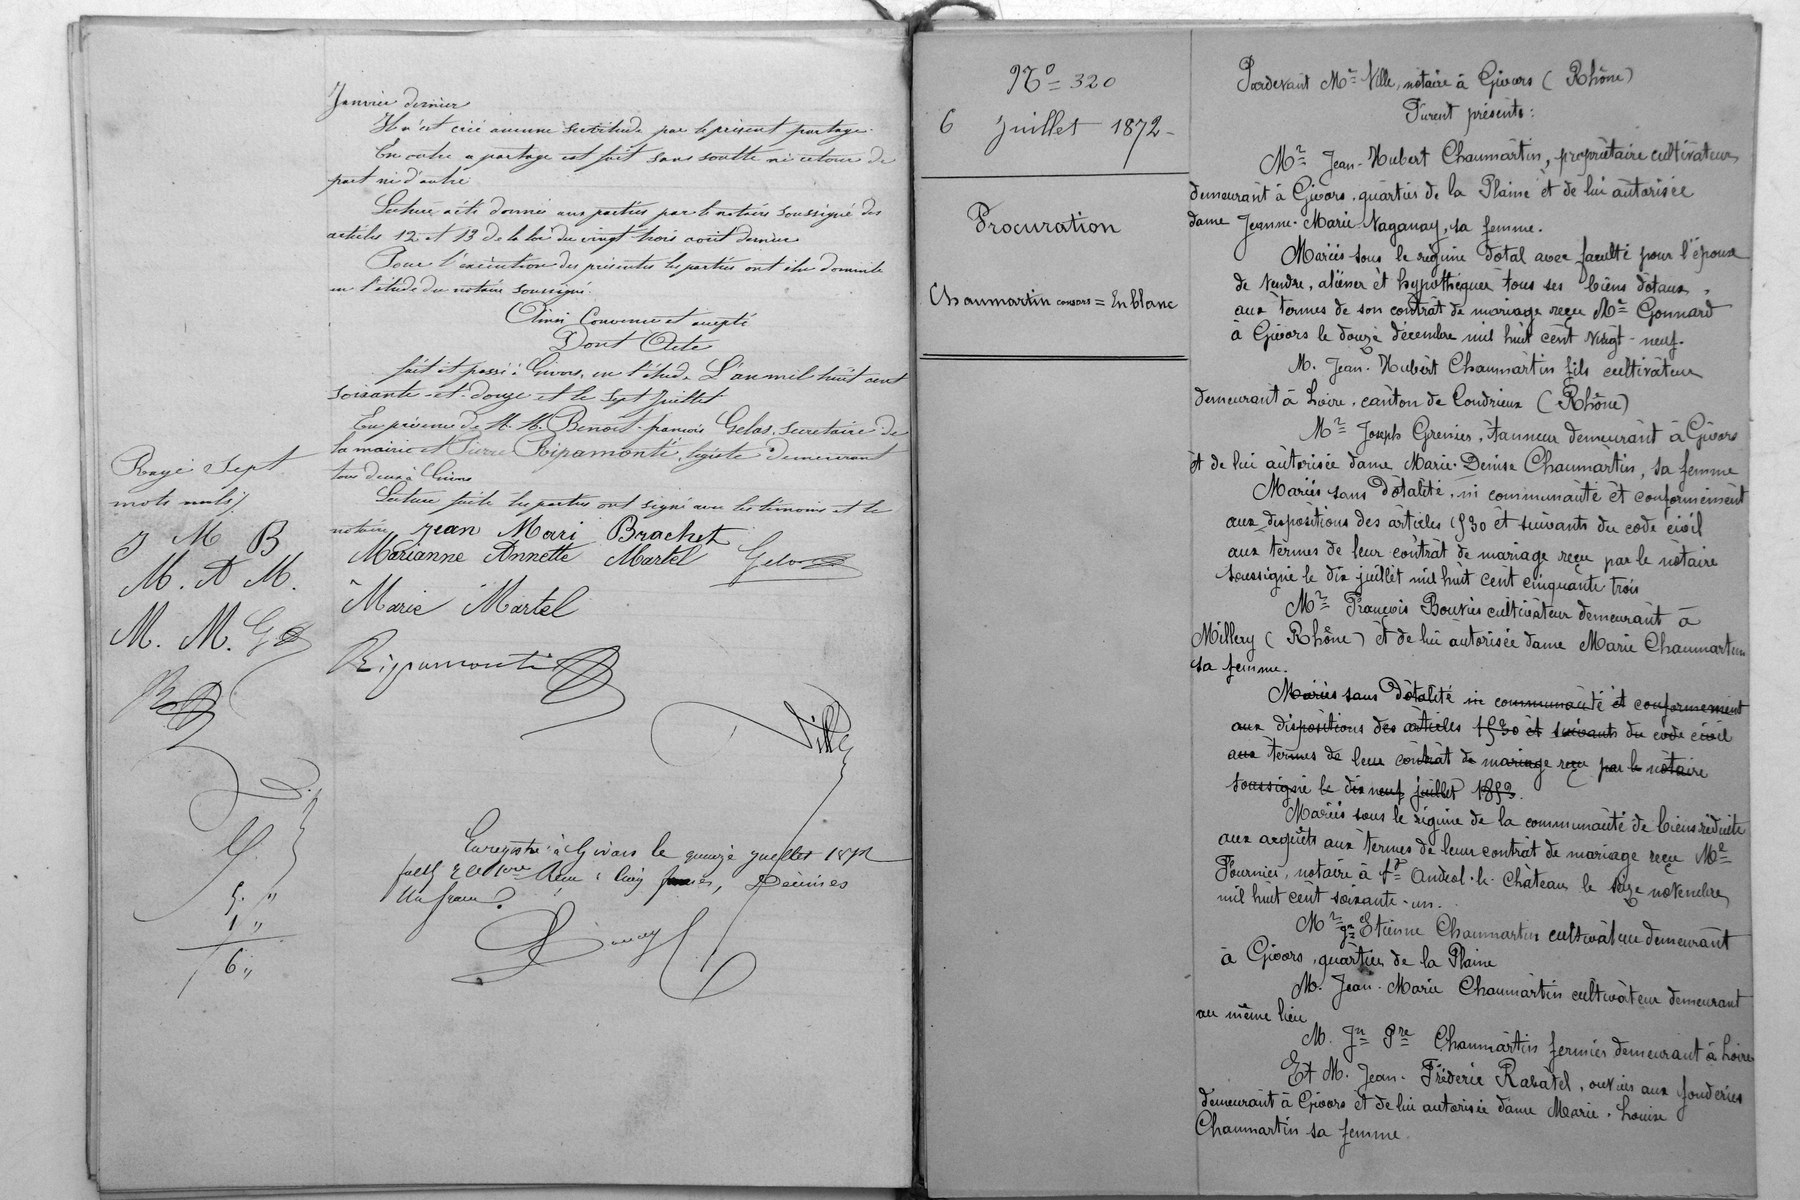 Janvier dernier
Il n'est créé aucune servitude par le présent partage.
En outre ce partage est fait sans soulte ni retour de
part ni d'autre
Lecture a été donnée aux parties par le notaire soussigné des
articles 12 et 13 de la loi du vingt trois août dernier
Pour l'exécution des présentes les parties ont élu domicile
en l'étude du notaire soussigné.
Ainsi Convenu et accepté
Dont Acte
fait et passé à Givors, en l'étude L'an mil huit cent
soixante-et-douze et le sept Juillet
En présence de M. M. Benoit-françois Gelas, secretaire de
la mairie et Pierre Ripamonti, légiste demeurant
tous deux à Givors
Lecture faite les parties ont signé avec les témoins et le
notaire
Jean Mari Brachet
Marianne Annette Martel Gelas
Marie Martel
Ripamonti
Ville
Rayé Sept
mots nuls
J M B
M. A M.
M. M. G
R
Enregistré à Givors le quinze juillet 1872
Reçu : Cinq francs, Décimes
Un franc
5 "
1 "
6 "
Nº 320
6 Juillet 1872
Procuration
Chaumartin consors = En blanc
Pardevant Me Ville, notaire à Givors (Rhône)
Furent présents:
Mr Jean-Hubert Chaumartin, propriétaire cultivateur
demeurant à Givors, quartier de la Plaine et de lui autorisée
dame Jeanne-Marie Naganay, sa femme.
Mariés sous le régime dotal avec faculté pour l'épouse
de vendre, aliéner et hypothéquer tous ses biens dotaux,
aux termes de son contrat de mariage reçu Me Gonnard
à Givors le douze décembre mil huit cent vingt-neuf.
M. Jean-Hubert Chaumartin fils cultivateur
demeurant à Loire, canton de Condrieux (Rhône)
Mr Joseph Grenier, tanneur demeurant à Givors
et de lui autorisée dame Marie-Denise Chaumartin, sa femme
Mariés sans dotalité, ni communauté et conformément
aux dispositions des articles 1530 et suivants du code civil
aux termes de leur contrat de mariage reçu par le notaire
soussigné le dix juillet mil huit cent cinquante trois
Mr François Bouvier cultivateur demeurant à
Millery (Rhône) et de lui autorisée dame Marie Chaumartin
sa femme.
Mariés sans dotalité ni communauté et conformément
aux dispositions des articles 1530 et suivants du code civil
aux termes de leur contrat de mariage reçu par le notaire
soussigné le dix neuf juillet 1853.
Mariés sous le régime de la communauté de biens réduite
aux acquêts aux termes de leur contrat de mariage reçu Me
Fournier, notaire à St Andéol-le-Château le seize novembre
mil huit cent soixante-un.
Mr Jn Etienne Chaumartin cultivateur demeurant
à Givors, quartier de la Plaine
M. Jean-Marie Chaumartin cultivateur demeurant
au même lieu
M. Jn Pre Chaumartin fermier demeurant à Loire
Et M. Jean-Fréderic Rabatel, ouvrier aux fonderies
demeurant à Givors et de lui autorisée dame Marie-Louise
Chaumartin sa femme.